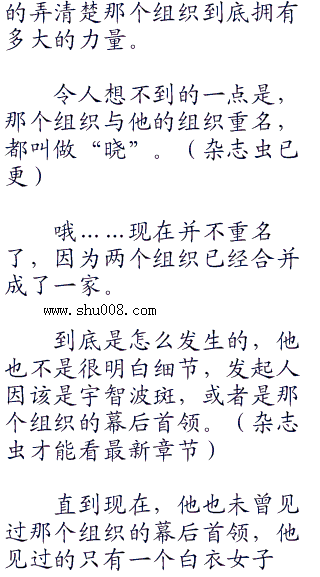 的弄清楚那个组织到底拥有
多大的力量。
令人想不到的一点是，
那个组织与他的组织重名，
都叫做“晓”。（杂志虫已
更）
哦……现在并不重名
了，因为两个组织已经合并
成了一家。
www.shu008.com
到底是怎么发生的，他
也不是很明白细节，发起人
因该是宇智波斑，或者是那
个组织的幕后首领。（杂志
虫才能看最新章节）
直到现在，他也未曾见
过那个组织的幕后首领，他
见过的只有一个白衣女子